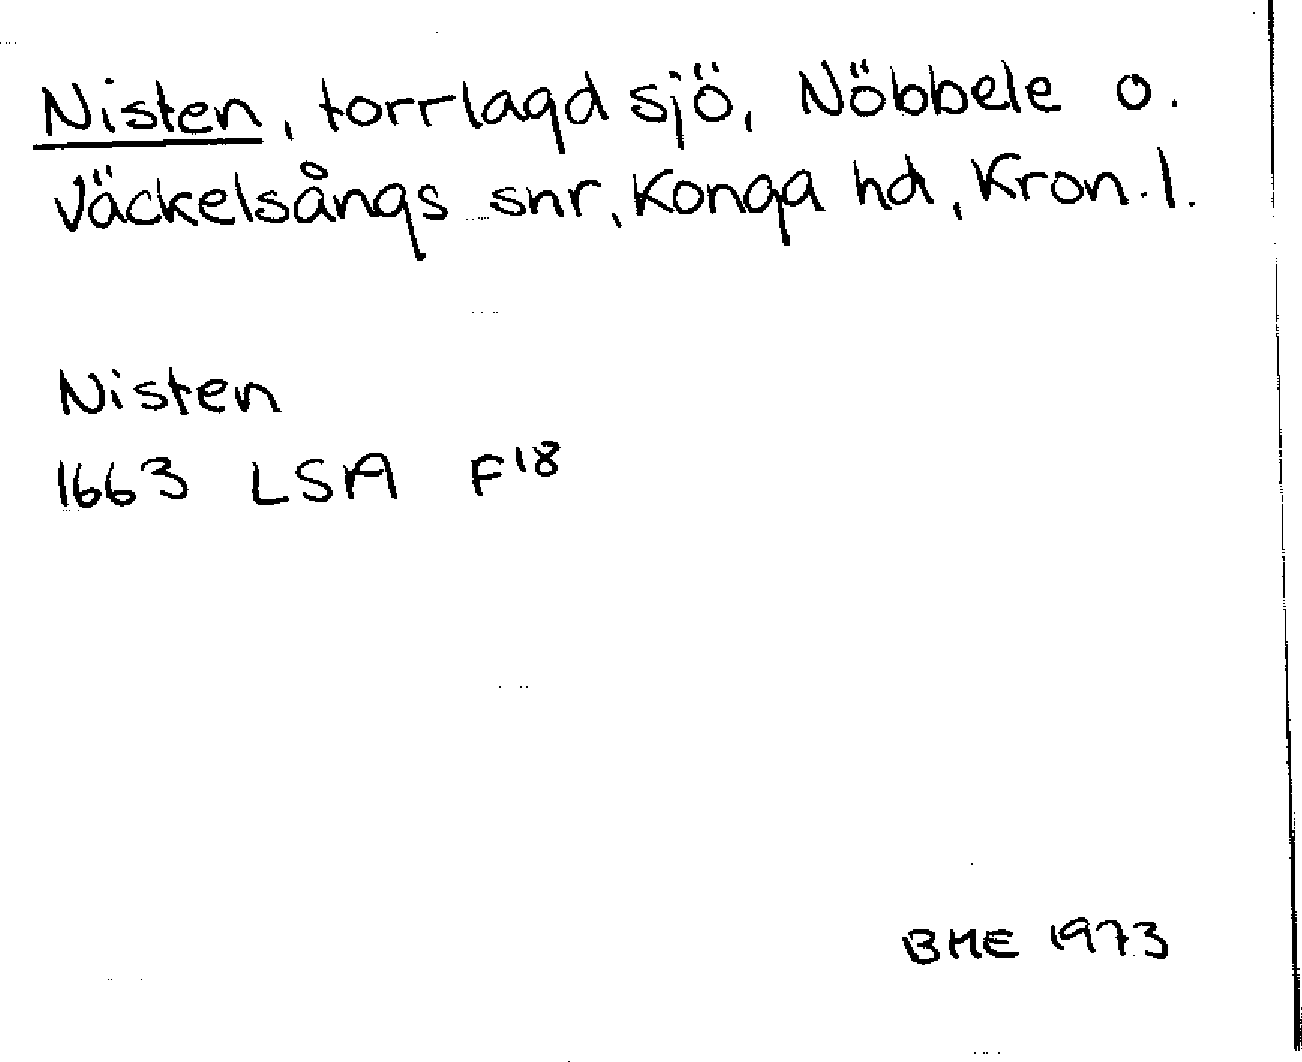 Nisten, torrlagd sjö, Nöbbele o.
Väckelsångs snr, Konga hd, Kron. l.
Nisten
1663 LSA F18
BME 1973